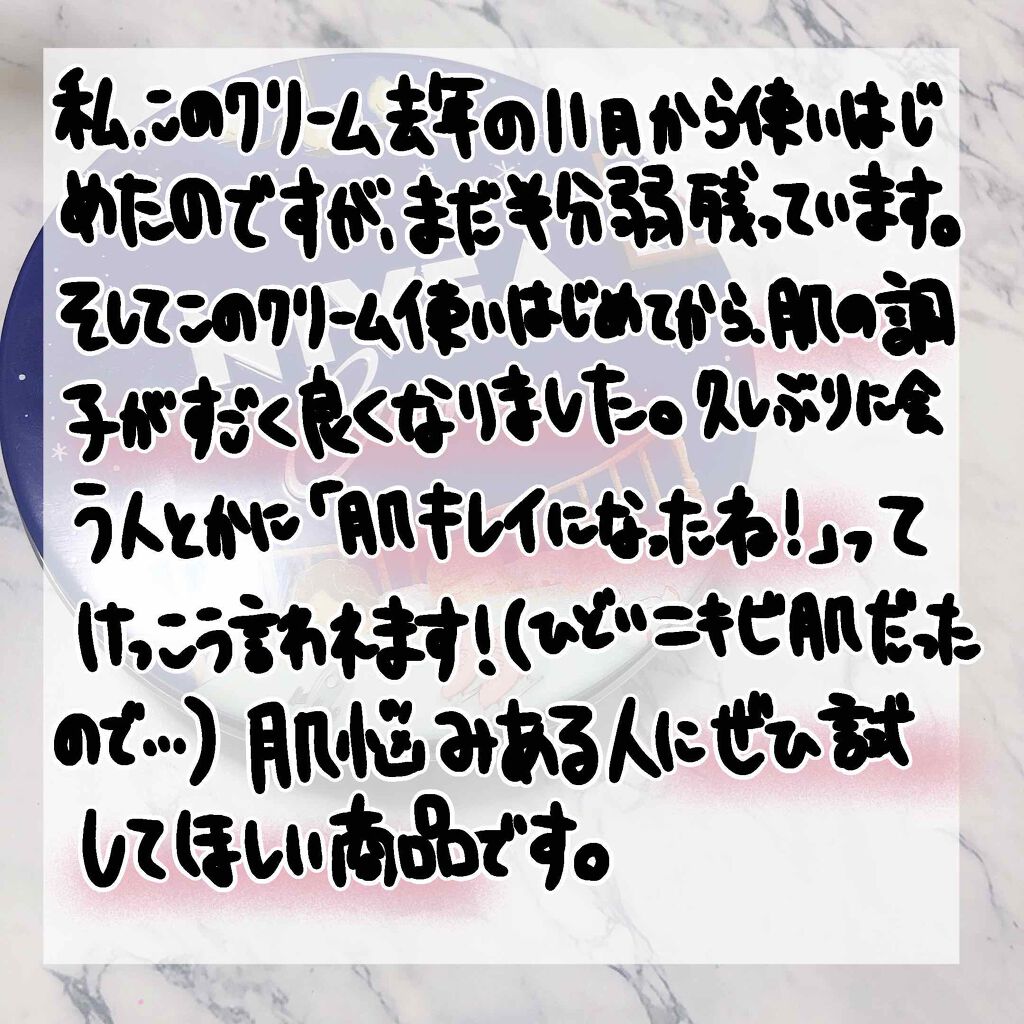 私、このクリーム去年の11月から使いはじ
めたのですが、まだ半分弱残っています。
そしてこのクリーム使いはじめてから、肌の調
子がすごく良くなりました。久しぶりに会
う人とかに「肌キレイになったね!」って
けっこう言われます!(ひどいニキビ肌だった
ので…)肌悩みある人にぜひ試
してほしい商品です。
NIVEA